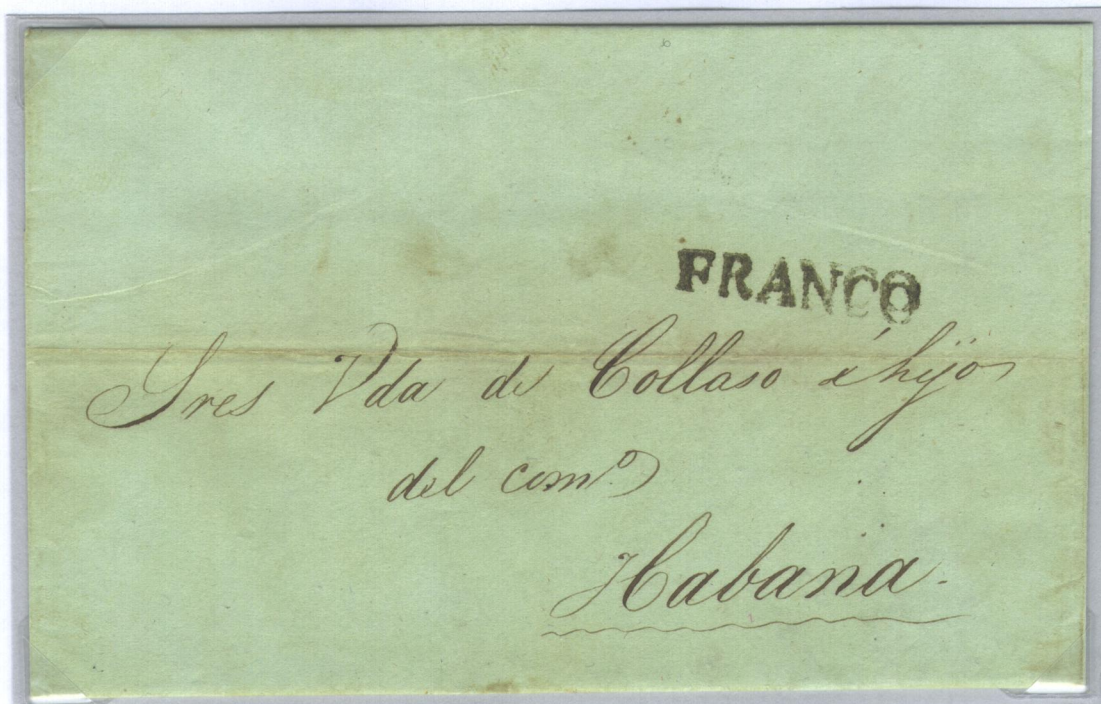 FRANCO
Sres Vda de Collaso é hijos
del com.º
Habana.